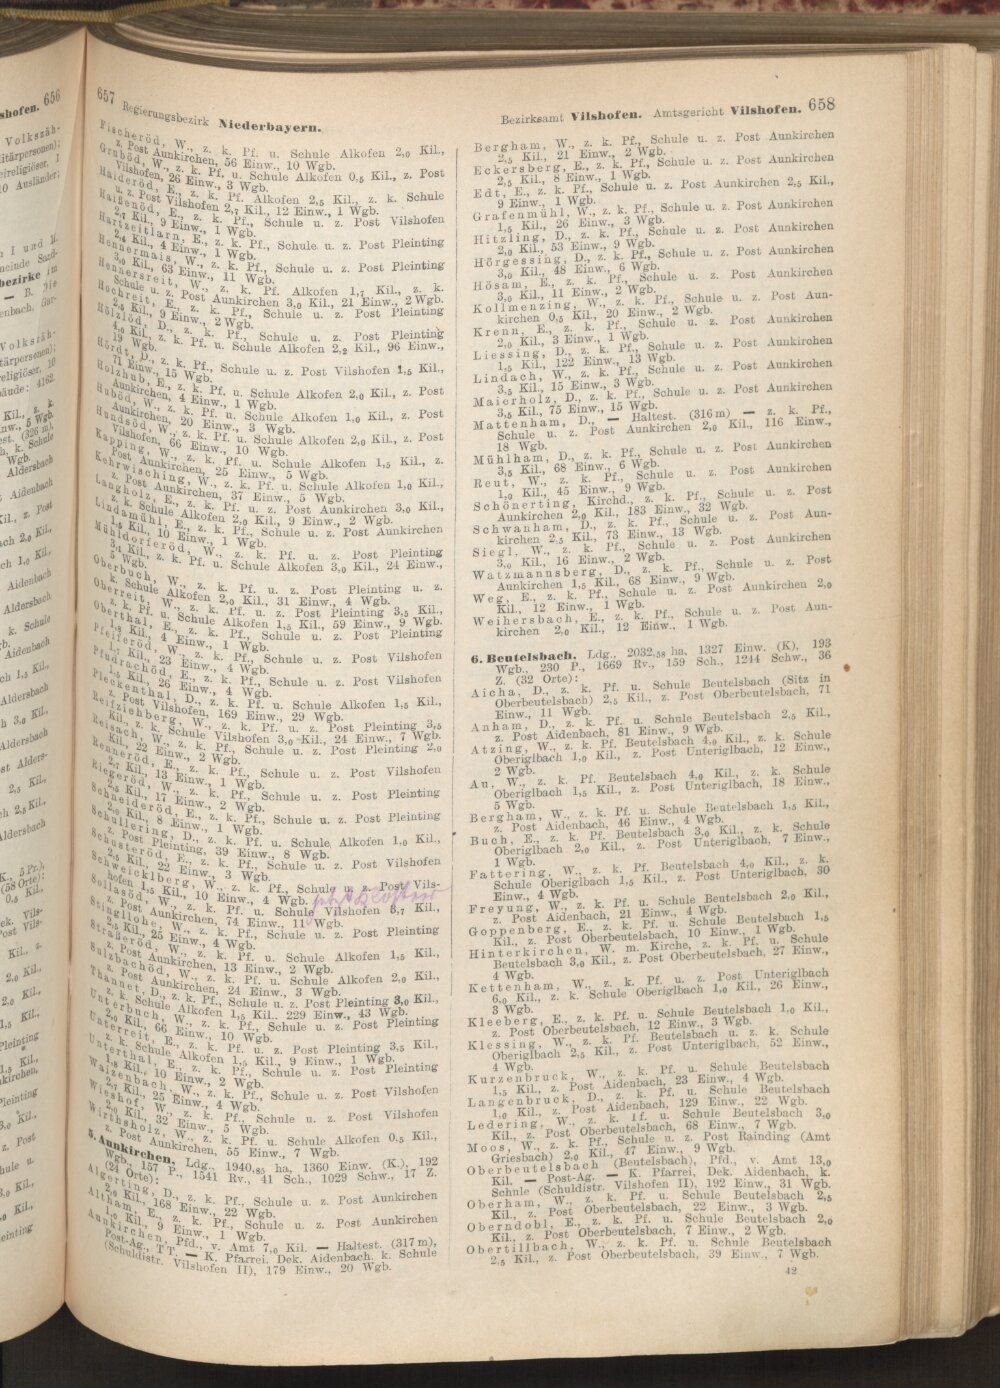 657 Regierungsbezirk Niederbayern.
Fischeröd, W., z. k. Pf. u. Schule Alkofen 2,0 Kil.,
z. Post Aunkirchen, 56 Einw., 10 Wgb.
Gruböd, W., z. k. Pf. u. Schule Alkofen 0,5 Kil., z. Post
Vilshofen, 26 Einw., 3 Wgb.
Haideröd, E., z. k. Pf. Alkofen 2,5 Kil., z. k. Schule
u. z. Post Vilshofen 2,7 Kil., 12 Einw., 1 Wgb.
Haißenöd, E., z. k. Pf., Schule u. z. Post Vilshofen
2,7 Kil., 9 Einw., 1 Wgb.
Hartzeitlarn, E., z. k. Pf., Schule u. z. Post Pleinting
2,4 Kil., 4 Einw., 1 Wgb.
Hennermais, W., z. k. Pf., Schule u. z. Post Pleinting
3,0 Kil., 63 Einw., 11 Wgb.
Hennersreit, W., z. k. Pf. Alkofen 1,7 Kil., z. k.
Schule u. z. Post Aunkirchen 3,0 Kil., 21 Einw., 2 Wgb.
Hochreit, E., z. k. Pf., Schule u. z. Post Pleinting
2,5 Kil., 9 Einw., 2 Wgb.
Hölzlöd, D., z. k. Pf., Schule u. z. Post Pleinting
4,0 Kil., z. k. Pf. u. Schule Alkofen 2,2 Kil., 96 Einw.,
19 Wgb.
Hördt, D., z. k. Pf., Schule u. z. Post Vilshofen 1,5 Kil.,
71 Einw., 15 Wgb.
Holzhub, E., z. k. Pf. u. Schule Alkofen 2,0 Kil., z. Post
Aunkirchen, 4 Einw., 1 Wgb.
Huböd, W., z. k. Pf. u. Schule Alkofen 1,0 Kil., z. Post
Aunkirchen, 20 Einw., 3 Wgb.
Hundsöd, W., z. k. Pf. u. Schule Alkofen 2,0 Kil., z. Post
Vilshofen, 66 Einw., 10 Wgb.
Kapping, W., z. k. Pf. u. Schule Alkofen 1,5 Kil., z.
Post Aunkirchen, 25 Einw., 5 Wgb.
Kehrwisching, W., z. k. Pf. u. Schule Alkofen 1,0 Kil.,
z. Post Aunkirchen, 37 Einw., 5 Wgb.
Langholz, E., z. k. Pf. u. z. Post Aunkirchen 3,0 Kil.,
z. k. Schule Alkofen 2,0 Kil., 9 Einw., 2 Wgb.
Lindamühl, E., z. k. Pf., Schule u. z. Post Aunkirchen
1,5 Kil., 10 Einw., 1 Wgb.
Mühldorferöd, W., z. k. Pf. u. z. Post Pleinting
3,4 Kil., z. k. Pf. u. Schule Alkofen 3,0 Kil., 24 Einw.,
5 Wgb.
Oberbuch, W., z. k. Pf. u. z. Post Pleinting u. z.
k. Schule Alkofen 2,0 Kil., 31 Einw., 4 Wgb.
Oberreit, W., z. k. Pf. u. z. Post Pleinting 3,5 Kil.,
z. k. Pf. u. Schule Alkofen 1,5 Kil., 59 Einw., 9 Wgb.
Oberthal, E., z. k. Pf., Schule u. z. Post Pleinting
1,8 Kil., 4 Einw., 1 Wgb.
Pfeiferöd, W., z. k. Pf., Schule u. z. Post Vilshofen
1,7 Kil., 23 Einw., 4 Wgb.
Pfudrachöd, E., z. k. Pf., Schule u. z. Post Vilshofen
1,5 Kil., 26 Einw., 4 Wgb.
Pleckenthal, D., z. k. Pf. u. Schule Alkofen 1,5 Kil.,
z. Post Vilshofen, 169 Einw., 29 Wgb.
Reifziehberg, W., z. k. Pf. u. z. Post Pleinting 3,5
Kil., z. k. Schule Vilshofen 3,0 Kil., 24 Einw., 7 Wgb.
Reisach, W., z. k. Pf., Schule u. z. Post Pleinting 2,0
Kil., 22 Einw., 2 Wgb.
Renneröd, E., z. k. Pf., Schule u. z. Post Vilshofen
2,7 Kil., 13 Einw., 1 Wgb.
Riegeröd, W., z. k. Pf., Schule u. z. Post Pleinting
2,5 Kil., 17 Einw., 2 Wgb.
Schneideröd, E., z. k. Pf., Schule u. z. Post Pleinting
2,0 Kil., 8 Einw., 1 Wgb.
Schullering, D., z. k. Pf. u. Schule Alkofen 1,0 Kil.,
z. Post Pleinting, 39 Einw., 8 Wgb.
Schusteröd, E., z. k. Pf., Schule u. z. Post Vilshofen
2,5 Kil., 22 Einw., 3 Wgb.
Schweicklberg, W., z. k. Pf., Schule u. z. Post Vils-
hofen 1,5 Kil., 10 Einw., 4 Wgb. jetzt Kloster
Sollasöd, W., z. k. Pf. u. Schule Vilshofen 3,7 Kil.,
z. Post Aunkirchen, 74 Einw., 11 Wgb.
Stingllohe, W., z. k. Pf., Schule u. z. Post Pleinting
2,5 Kil., 25 Einw., 4 Wgb.
Straßeröd, W., z. k. Pf. u. Schule Alkofen 1,5 Kil.,
z. Post Aunkirchen, 13 Einw., 2 Wgb.
Sulzbachöd, W., z. k. Pf. u. Schule Alkofen 2,0 Kil.,
z. Post Aunkirchen, 24 Einw., 3 Wgb.
Thannet, D., z. k. Pf., Schule u. z. Post Pleinting 3,0 Kil.,
z. k. Schule Alkofen 1,5 Kil. 229 Einw., 43 Wgb.
Unterbuch, W., z. k. Pf., Schule u. z. Post Pleinting
2,0 Kil., 66 Einw., 10 Wgb.
Unterreit, E., z. k. Pf. u. z. Post Pleinting 3,5 Kil.,
z. k. Schule Alkofen 1,5 Kil., 9 Einw., 1 Wgb.
Unterthal, E., z. k. Pf., Schule u. z. Post Pleinting
1,8 Kil., 10 Einw., 2 Wgb.
Waizenbach, W., z. k. Pf., Schule u. z. Post Vilshofen
2,7 Kil., 25 Einw., 4 Wgb.
Wieshof, W., z. k. Pf., Schule u. z. Post Vilshofen
2,0 Kil., 32 Einw., 5 Wgb.
Wirthsholz, W., z. k. Pf. u. Schule Alkofen 0,5 Kil.,
z. Post Aunkirchen, 55 Einw., 7 Wgb.
5. Aunkirchen, Ldg., 1940,85 ha, 1360 Einw. (K.), 192
Wgb., 157 P., 1541 Rv., 41 Sch., 1029 Schw., 17 Z.
(24 Orte):
Algerting, D., z. k. Pf., Schule u. z. Post Aunkirchen
2,0 Kil., 168 Einw., 22 Wgb.
Altham, E., z. k. Pf., Schule u. z. Post Aunkirchen
1,0 Kil., 9 Einw., 1 Wgb.
Aunkirchen, Pfd., v. Amt 7,0 Kil. — Haltest. (317 m),
Post-Ag., TT. — K. Pfarrei, Dek. Aidenbach, k. Schule
(Schuldistr. Vilshofen II), 179 Einw., 20 Wgb.
Bezirksamt Vilshofen. Amtsgericht Vilshofen. 658
Bergham, W., z. k. Pf., Schule u. z. Post Aunkirchen
2,5 Kil., 21 Einw., 2 Wgb.
Eckersberg, E., z. k. Pf., Schule u. z. Post Aunkirchen
2,5 Kil., 8 Einw., 1 Wgb.
Edt, E., z. k. Pf., Schule u. z. Post Aunkirchen 2,5 Kil.,
9 Einw., 1 Wgb.
Grafenmühl, W., z. k. Pf., Schule u. z. Post Aunkirchen
1,5 Kil., 26 Einw., 3 Wgb.
Hitzling, D., z. k. Pf., Schule u. z. Post Aunkirchen
2,0 Kil., 53 Einw., 9 Wgb.
Hörgessing, D., z. k. Pf., Schule u. z. Post Aunkirchen
3,0 Kil., 48 Einw., 6 Wgb.
Hösam, E., z. k. Pf., Schule u. z. Post Aunkirchen
3,0 Kil., 11 Einw., 2 Wgb.
Kollmenzing, W., z. k. Pf., Schule u. z. Post Aun-
kirchen 0,5 Kil., 20 Einw., 2 Wgb.
Krenn, E., z. k. Pf., Schule u. z. Post Aunkirchen
2,0 Kil., 3 Einw., 1 Wgb.
Liessing, D., z. k. Pf., Schule u. z. Post Aunkirchen
1,5 Kil., 122 Einw., 13 Wgb.
Lindach, W., z. k. Pf., Schule u. z. Post Aunkirchen
3,5 Kil., 15 Einw., 3 Wgb.
Maierholz, D., z. k. Pf., Schule u. z. Post Aunkirchen
3,5 Kil., 75 Einw., 15 Wgb.
Mattenham, D., — Haltest. (316 m) — z. k. Pf.,
Schule u. z. Post Aunkirchen 2,0 Kil., 116 Einw.,
18 Wgb.
Mühlham, D., z. k. Pf., Schule u. z. Post Aunkirchen
3,5 Kil., 68 Einw., 6 Wgb.
Reut, W., z. k. Pf., Schule u. z. Post Aunkirchen
1,0 Kil., 45 Einw., 9 Wgb.
Schönerting, Kirchd., z. k. Pf., Schule u. z. Post
Aunkirchen 2,0 Kil., 183 Einw., 32 Wgb.
Schwanham, D., z. k. Pf., Schule u. z. Post Aun-
kirchen 2,5 Kil., 73 Einw., 13 Wgb.
Siegl, W., z. k. Pf., Schule u. z. Post Aunkirchen
3,0 Kil., 16 Einw., 2 Wgb.
Watzmannsberg, D., z. k. Pf., Schule u. z. Post
Aunkirchen 1,5 Kil., 68 Einw., 9 Wgb.
Weg, E., z. k. Pf., Schule u. z. Post Aunkirchen 2,0
Kil., 12 Einw., 1 Wgb.
Weihersbach, E., z. k. Pf., Schule u. z. Post Aun-
kirchen 2,0 Kil., 12 Einw., 1 Wgb.
6. Beutelsbach. Ldg., 2032,58 ha, 1327 Einw. (K), 193
Wgb., 230 P., 1669 Rv., 159 Sch., 1244 Schw., 36
Z. (32 Orte):
Aicha, D., z. k. Pf. u. Schule Beutelsbach (Sitz in
Oberbeutelsbach) 2,5 Kil., z. Post Oberbeutelsbach, 71
Einw., 11 Wgb.
Anham, D., z. k. Pf. u. Schule Beutelsbach 2,5 Kil.,
z. Post Aidenbach, 81 Einw., 9 Wgb.
Atzing, W., z. k. Pf. Beutelsbach 4,0 Kil., z. k. Schule
Oberiglbach 1,0 Kil., z. Post Unteriglbach, 12 Einw.,
2 Wgb.
Au, W., z. k. Pf. Beutelsbach 4,0 Kil., z. k. Schule
Oberiglbach 1,5 Kil., z. Post Unteriglbach, 18 Einw.,
5 Wgb.
Bergham, W., z. k. Pf. u. Schule Beutelsbach 1,5 Kil.,
z. Post Aidenbach, 46 Einw., 4 Wgb.
Buch, E., z. k. Pf. Beutelsbach 3,0 Kil., z. k. Schule
Oberiglbach 2,0 Kil., z. Post Unteriglbach, 7 Einw.,
1 Wgb.
Fattering, W., z. k. Pf. Beutelsbach 4,0 Kil., z. k.
Schule Oberiglbach 1,5 Kil., z. Post Unteriglbach, 30
Einw., 4 Wgb.
Freyung, W., z. k. Pf. u. Schule Beutelsbach 2,0 Kil.,
z. Post Aidenbach, 21 Einw., 4 Wgb.
Goppenberg, E., z. k. Pf. u. Schule Beutelsbach 1,5
Kil., z. Post Oberbeutelsbach, 10 Einw., 1 Wgb.
Hinterkirchen, W. m. Kirche, z. k. Pf. u. Schule
Beutelsbach 3,0 Kil., z. Post Oberbeutelsbach, 27 Einw.,
4 Wgb.
Kettenham, W., z. k. Pf. u. z. Post Unteriglbach
6,0 Kil., z. k. Schule Oberiglbach 1,0 Kil., 26 Einw.,
3 Wgb.
Kleeberg, E., z. k. Pf. u. Schule Beutelsbach 1,0 Kil.,
z. Post Oberbeutelsbach, 12 Einw., 3 Wgb.
Klessing, W., z. k. Pf. Beutelsbach u. z. k. Schule
Oberiglbach 2,5 Kil., z. Post Unteriglbach, 52 Einw.,
4 Wgb.
Kurzenbruck, W., z. k. Pf. u. Schule Beutelsbach
1,5 Kil., z. Post Aidenbach, 23 Einw., 4 Wgb.
Langenbruck, D., z. k. Pf. u. Schule Beutelsbach
1,0 Kil., z. Post Aidenbach, 129 Einw., 22 Wgb.
Ledering, W., z. k. Pf. u. Schule Beutelsbach 3,0
Kil., z. Post Oberbeutelsbach, 68 Einw., 7 Wgb.
Moos, W., z. k. Pf., Schule u. z. Post Rainding (Amt
Griesbach) 2,0 Kil., 47 Einw., 9 Wgb.
Oberbeutelsbach (Beutelsbach), Pfd., v. Amt 13,0
Kil. — Post-Ag. — K. Pfarrei, Dek. Aidenbach, k.
Schule (Schuldistr. Vilshofen II), 192 Einw., 31 Wgb.
Oberham, W., z. k. Pf. u. Schule Beutelsbach 2,5
Kil., z. Post Oberbeutelsbach, 22 Einw., 3 Wgb.
Oberndobl, E., z. k. Pf. u. Schule Beutelsbach 2,0
Kil., z. Post Oberbeutelsbach, 7 Einw., 2 Wgb.
Obertillbach, W., z. k. Pf. u. Schule Beutelsbach
2,5 Kil., z. Post Oberbeutelsbach, 39 Einw., 7 Wgb.
42